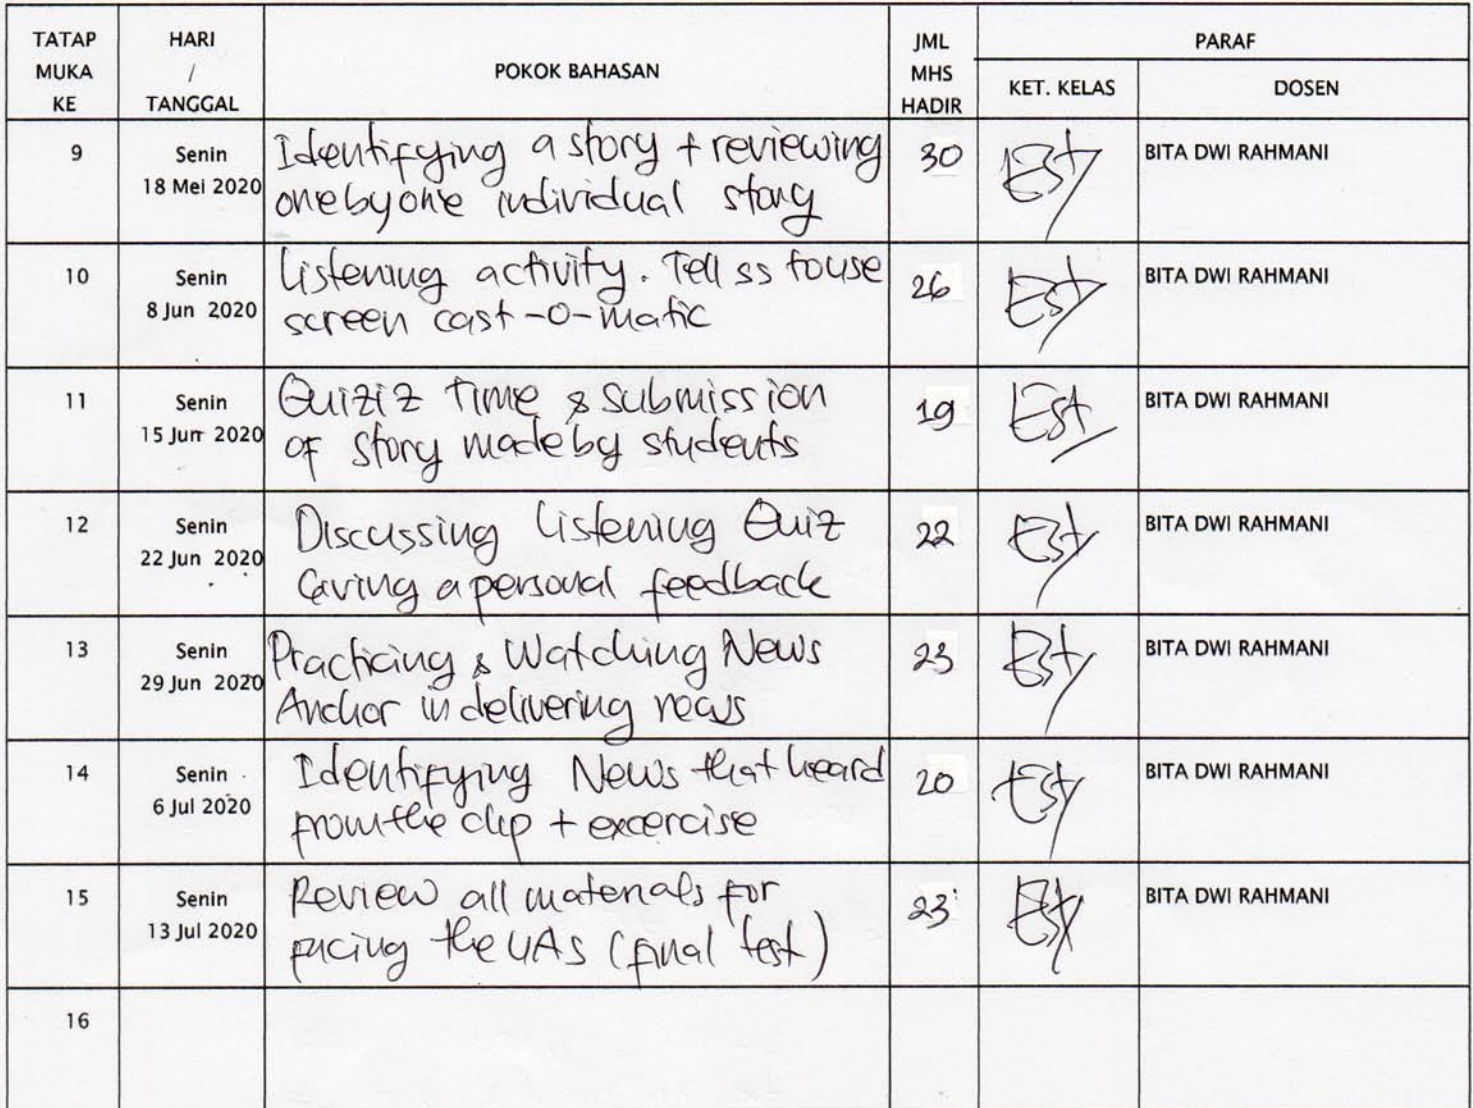 TATAP
MUKA
KE
HARI
/
TANGGAL
POKOK BAHASAN
JML
MHS
HADIR
PARAF
KET. KELAS
DOSEN
9
Senin
18 Mei 2020
Identifying a story + reviewing
one by one individual story
30
Est
BITA DWI RAHMANI
10
Senin
8 Jun 2020
Listening activity. Tell ss to use
screen cast-o-matic
26
Est
BITA DWI RAHMANI
11
Senin
15 Jun 2020
Quiziz Time & submission
of story made by students
19
Est
BITA DWI RAHMANI
12
Senin
22 Jun 2020
Discussing Listening Quiz
Giving a personal feedback
22
Est
BITA DWI RAHMANI
13
Senin
29 Jun 2020
Practicing & Watching News
Anchor in delivering news
23
Est
BITA DWI RAHMANI
14
Senin
6 Jul 2020
Identifying News that heard
from the clip + excercise
20
Est
BITA DWI RAHMANI
15
Senin
13 Jul 2020
Review all materials for
facing the UAS (final test)
23
Est
BITA DWI RAHMANI
16